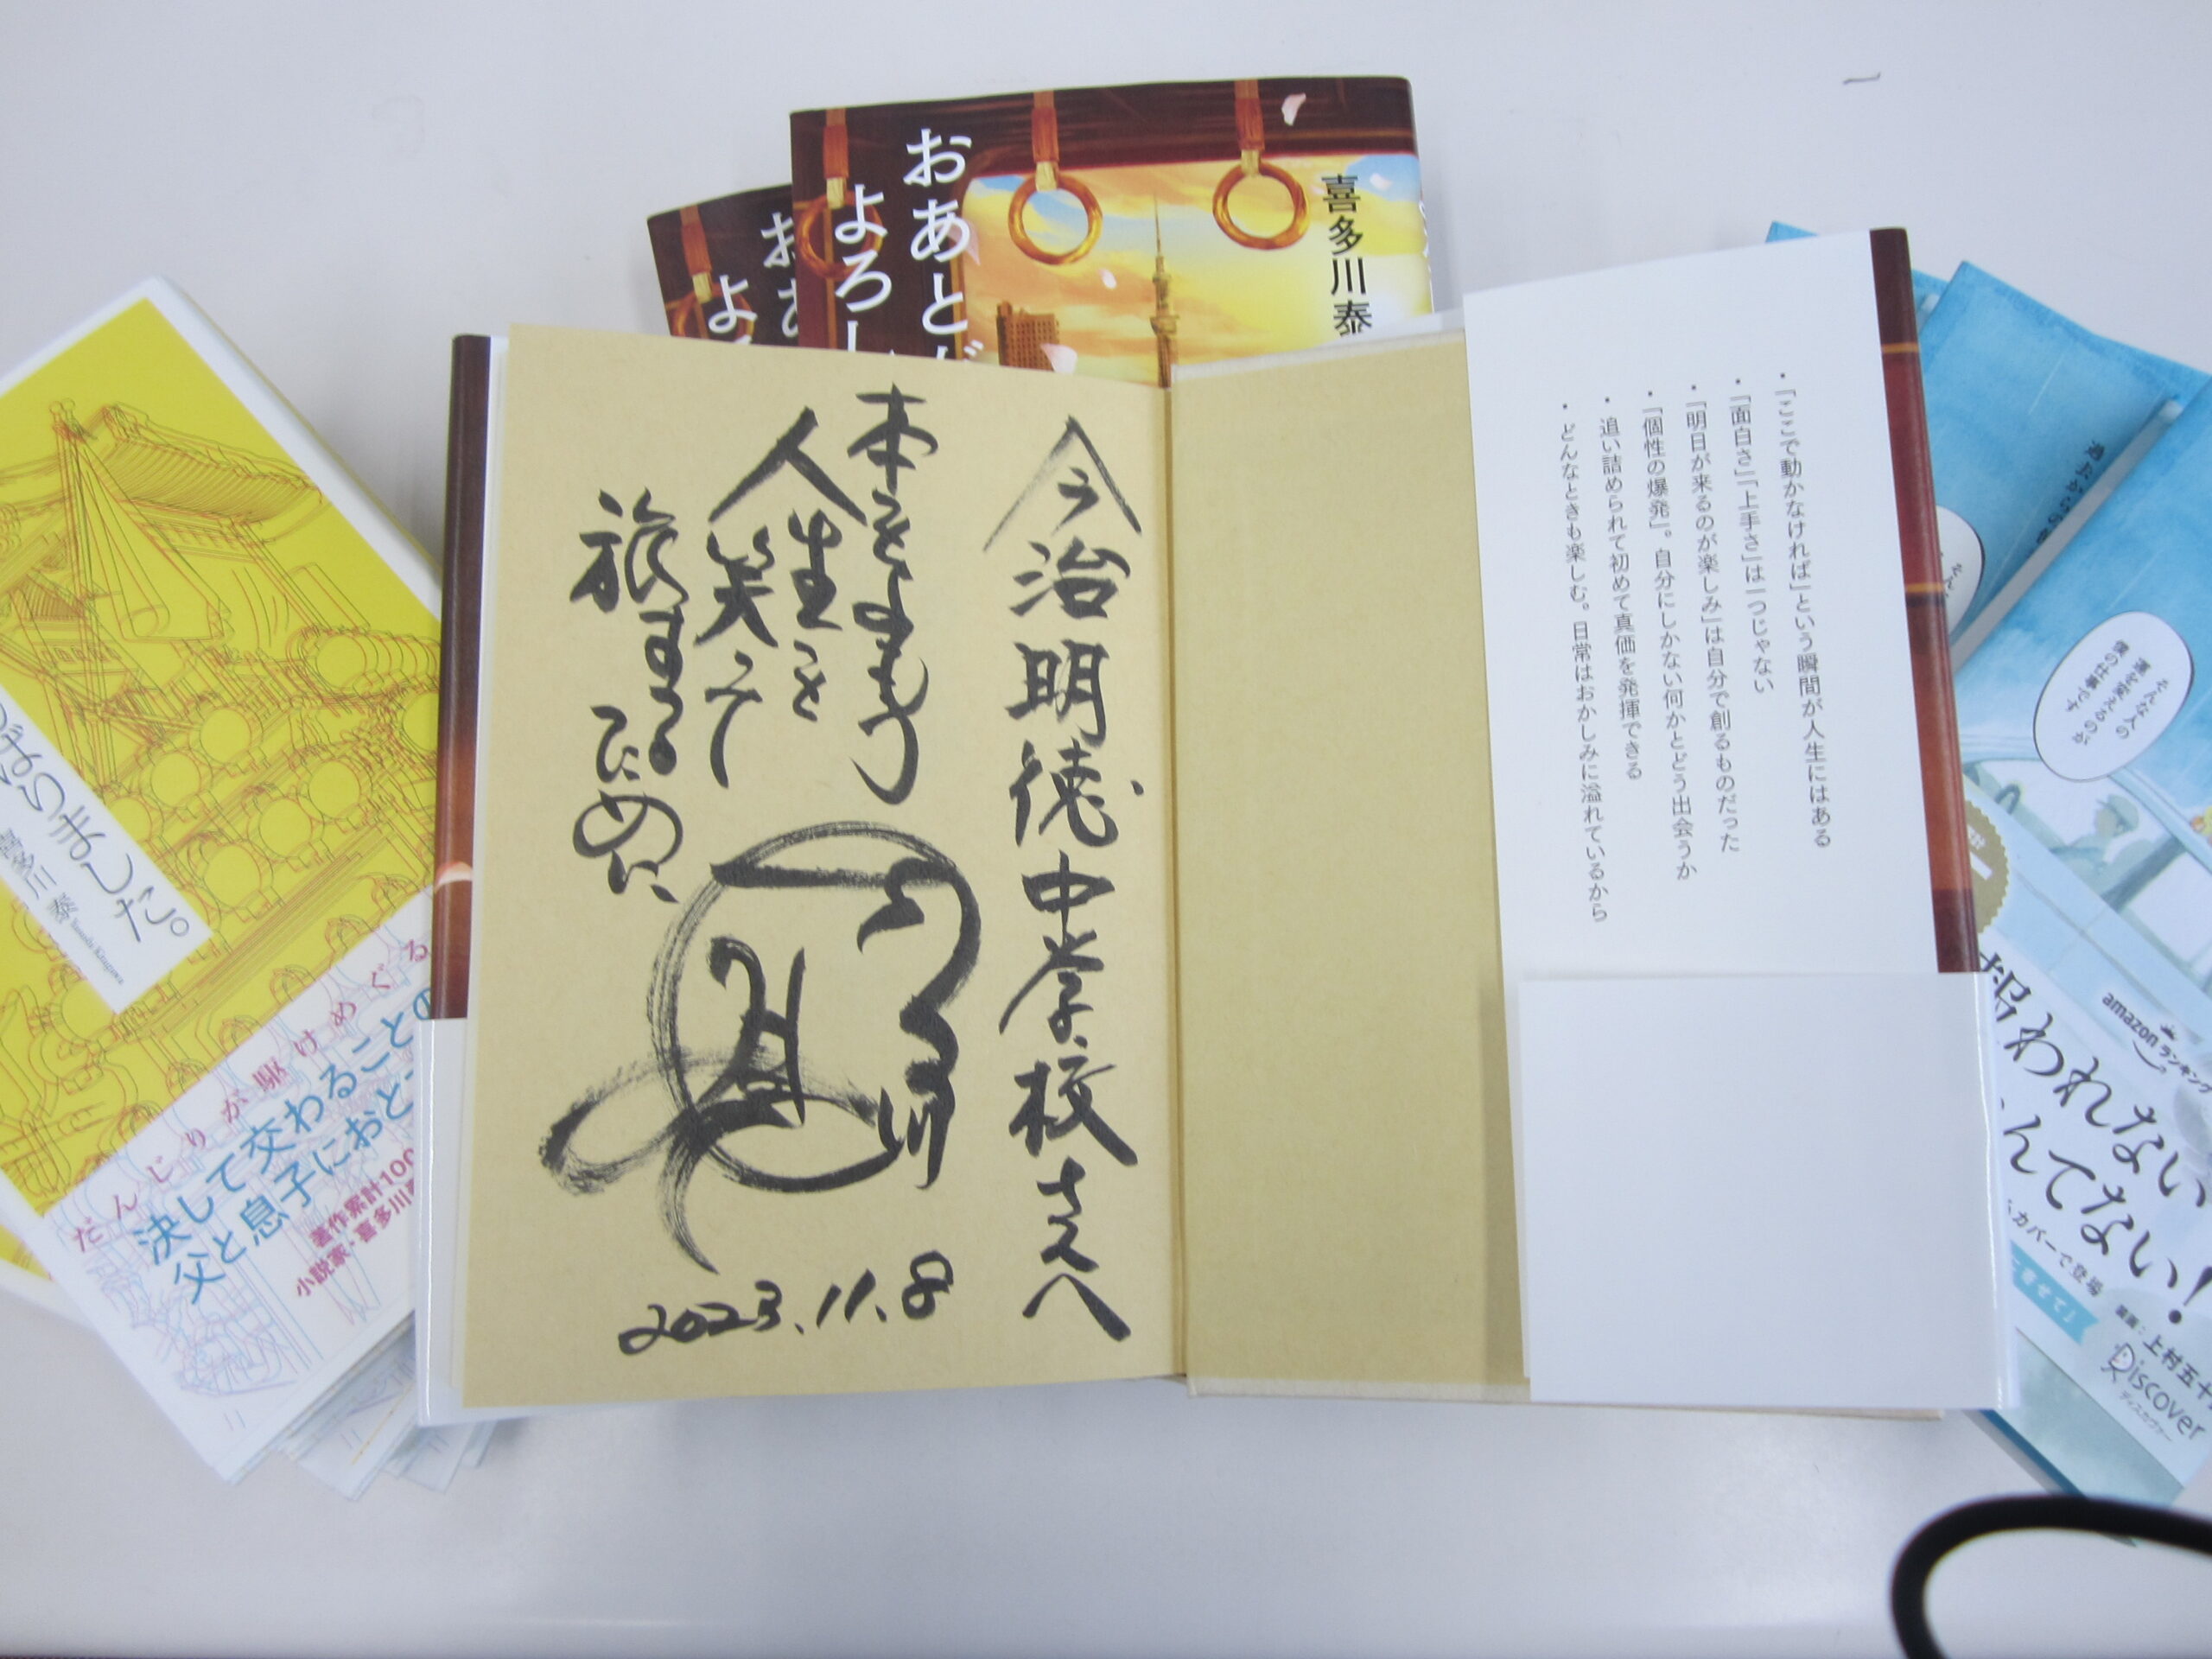 おあとが
よろし
喜多川泰
おあ
よろ
今治明徳中学校さんへ
本をまもう
人生を
笑って
旅するために
喜多川
泰
2023.11.8
・「ここで動かなければ」という瞬間が人生にはある
・「面白さ」「上手さ」は一つじゃない
・「明日が来るのが楽しみ」は自分で創るものだった
・「個性の爆発」。自分にしかない何かとどう出会うか
・追い詰められて初めて真価を発揮できる
・どんなときも楽しむ。日常はおかしみに溢れているから
はらまました。
喜多川 泰
Yasushi Kitagawa
だんじりが駆けめぐる
決して交わることの
父と息子におと
著作累計100
小説家・喜多川
そんな人の
運を変えるのが
僕の仕事です
amazonランキング
報われない
んてない!
カバーで登場
装画:上村五十
Discover
ディスカヴァー